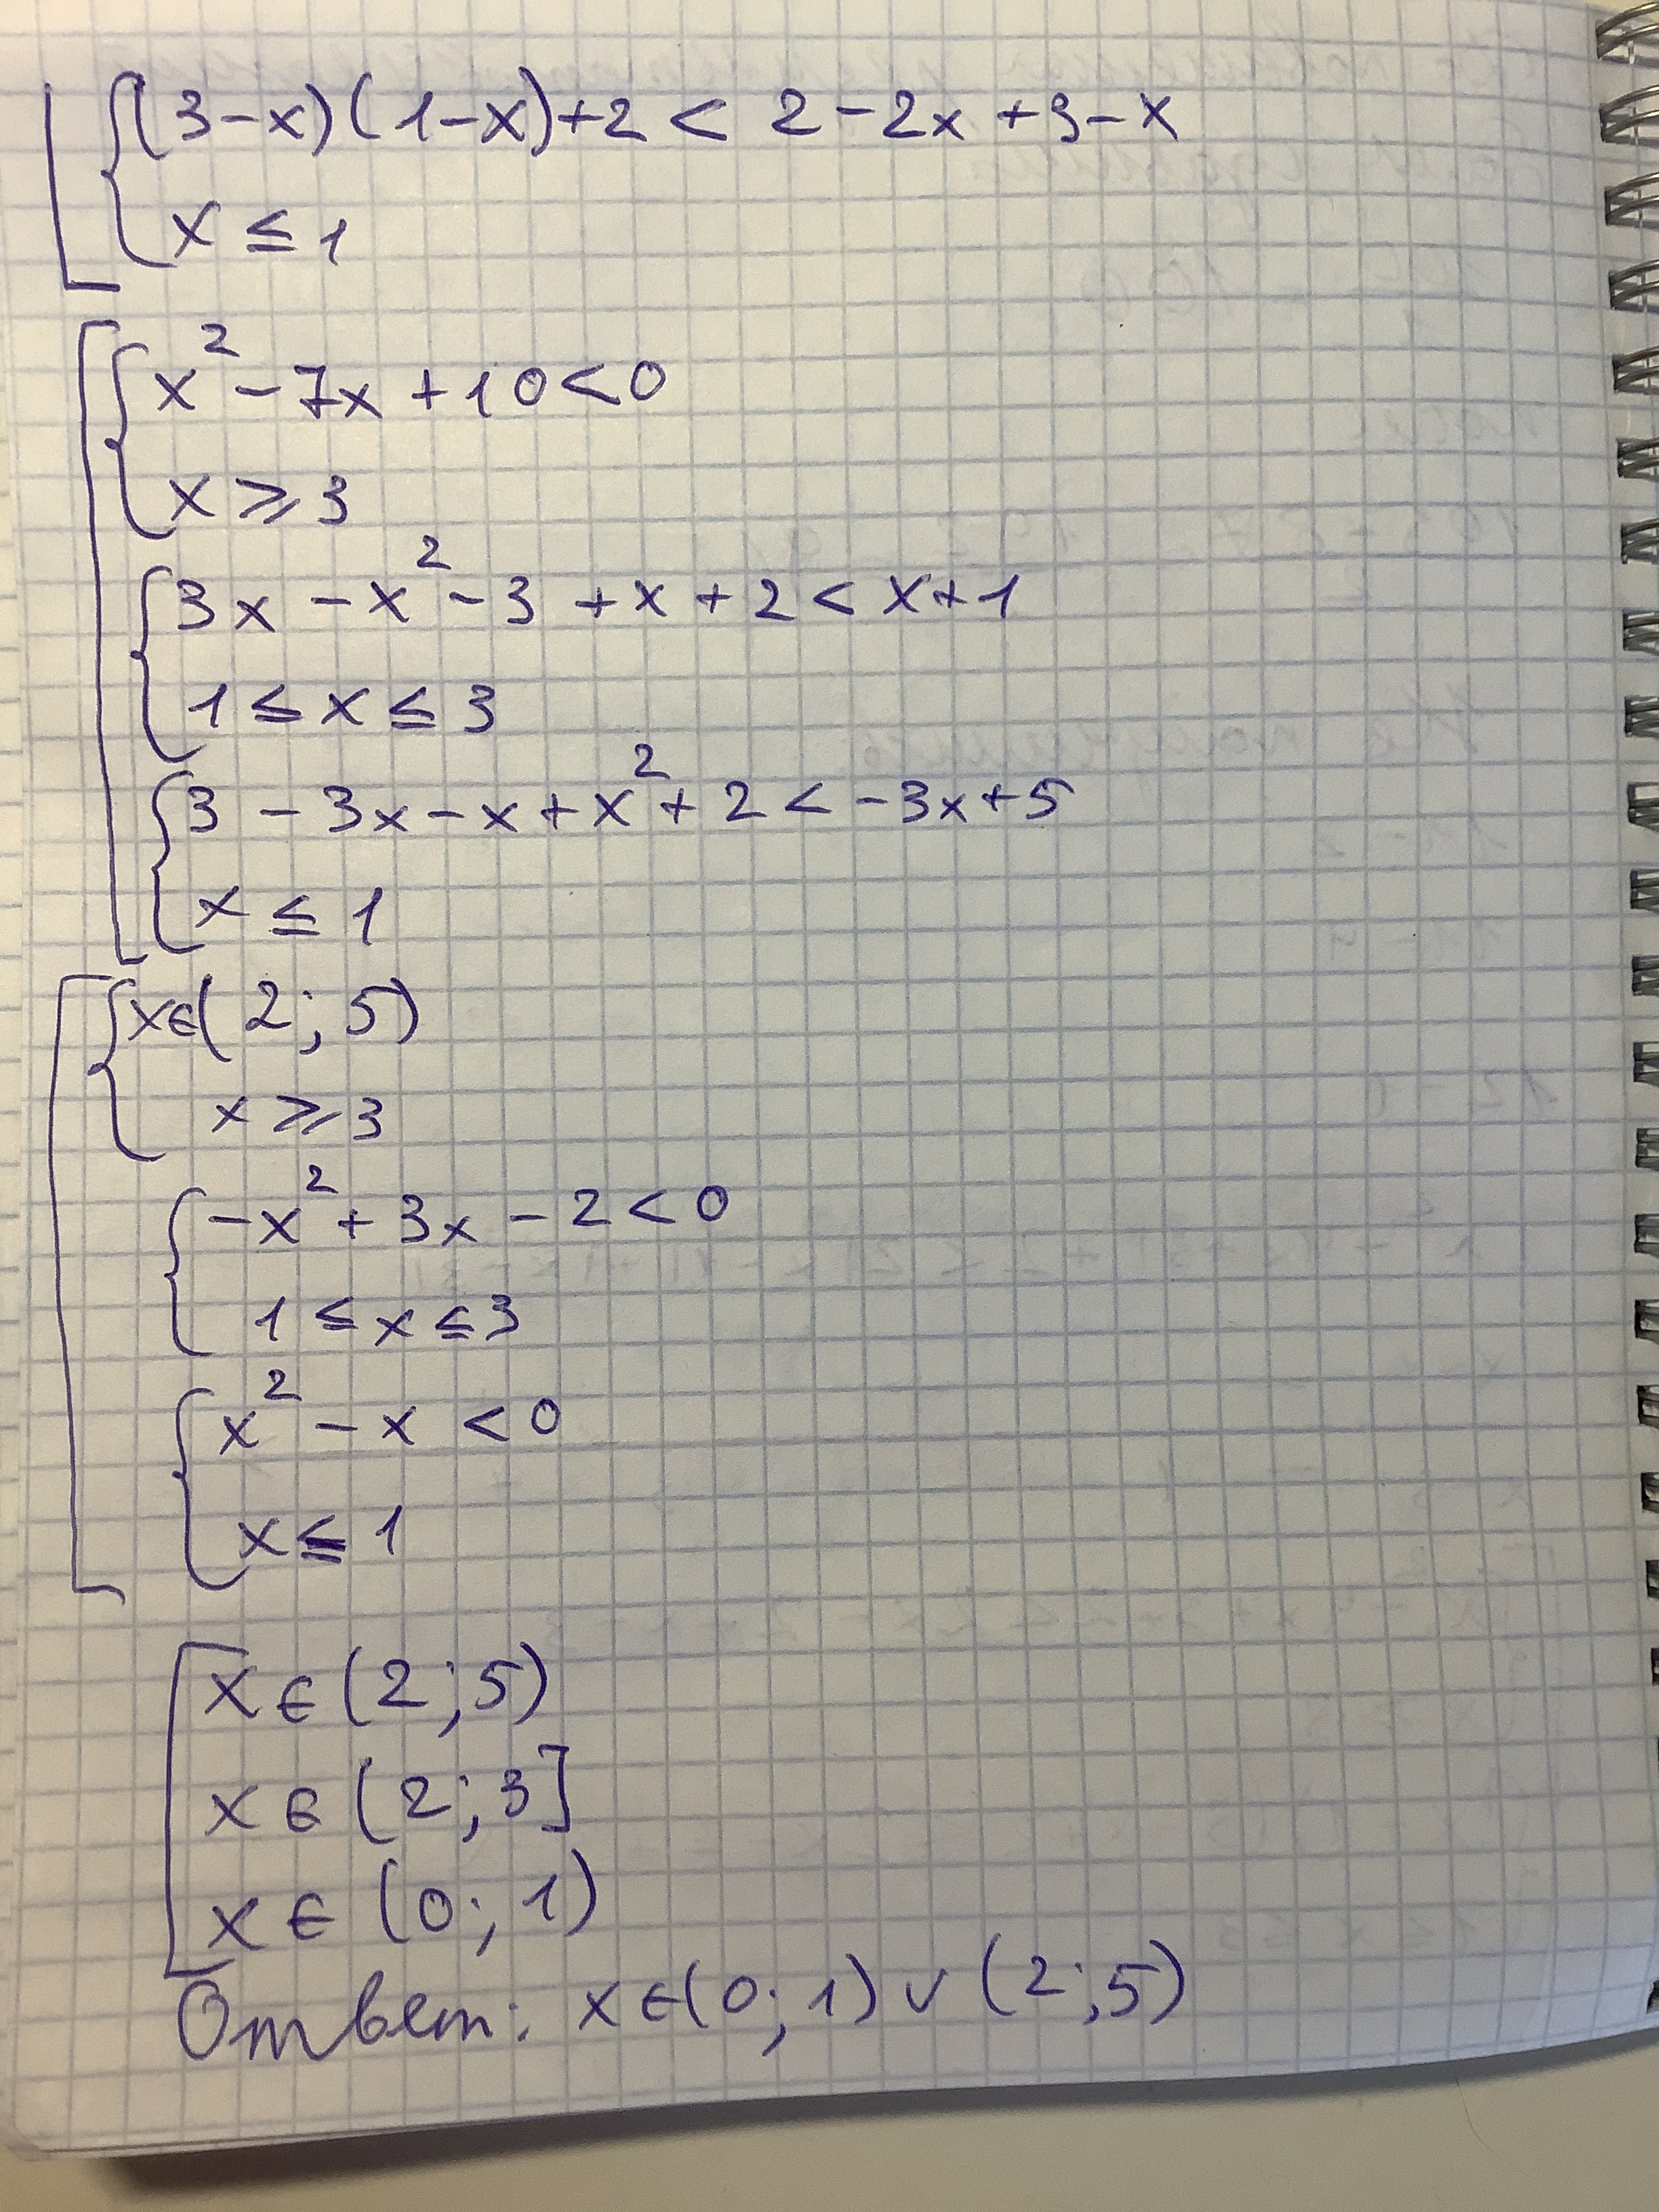 [{(3-x)(1-x)+2 < 2-2x+3-x
x ≤ 1
[{x²-7x+10<0
x ⩾ 3
{3x-x²-3+x+2<x+1
1 ≤ x ≤ 3
{3-3x-x+x²+2<-3x+5
x ≤ 1
[{x∈(2;5)
x ⩾ 3
{-x²+3x-2<0
1 ≤ x ≤ 3
{x²-x<0
x ≤ 1
[x∈(2;5)
x∈(2;3]
x∈(0;1)
Ответ: x∈(0;1)∨(2;5)